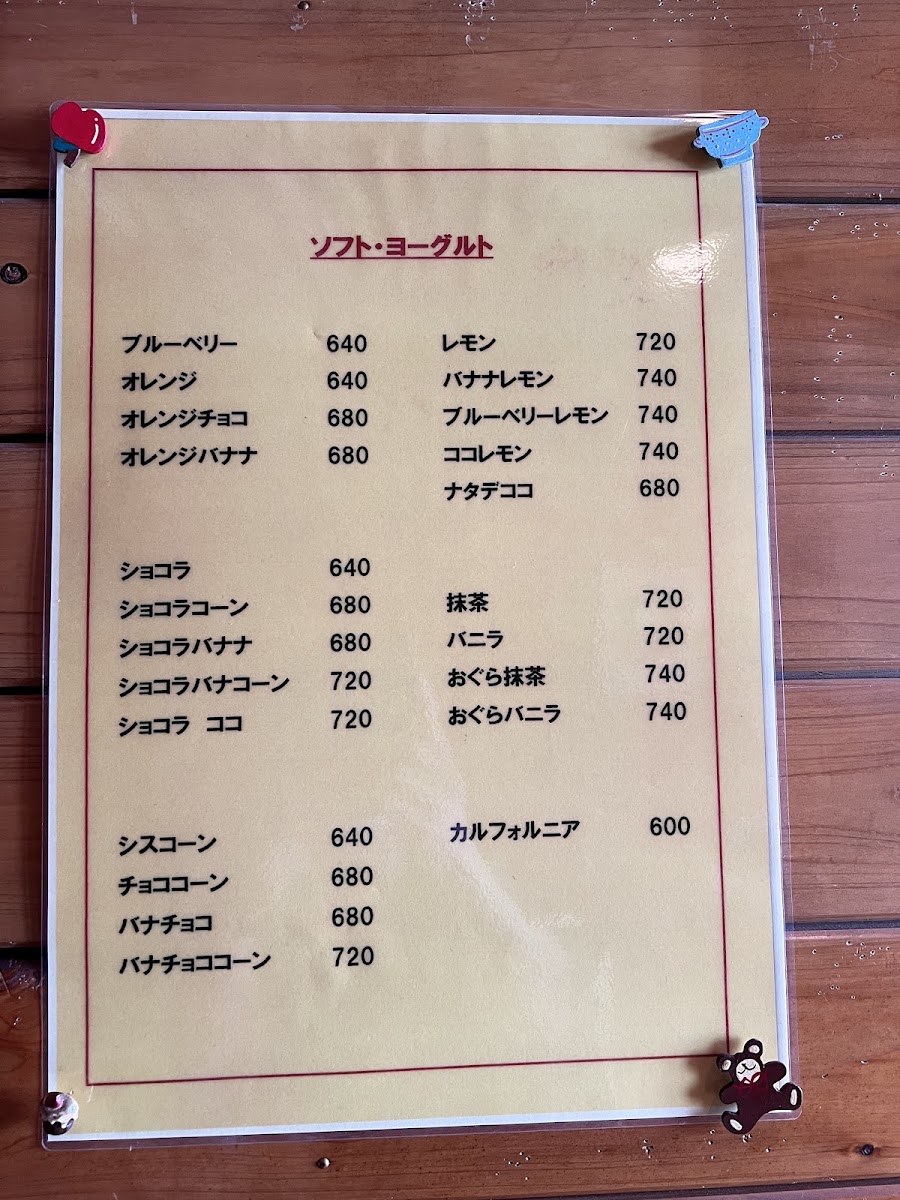 ソフト・ヨーグルト
ブルーベリー 640
オレンジ 640
オレンジチョコ 680
オレンジバナナ 680
ショコラ 640
ショコラコーン 680
ショコラバナナ 680
ショコラバナコーン 720
ショコラ ココ 720
シスコーン 640
チョココーン 680
バナチョコ 680
バナチョココーン 720
レモン 720
バナナレモン 740
ブルーベリーレモン 740
ココレモン 740
ナタデココ 680
抹茶 720
バニラ 720
おぐら抹茶 740
おぐらバニラ 740
カルフォルニア 600